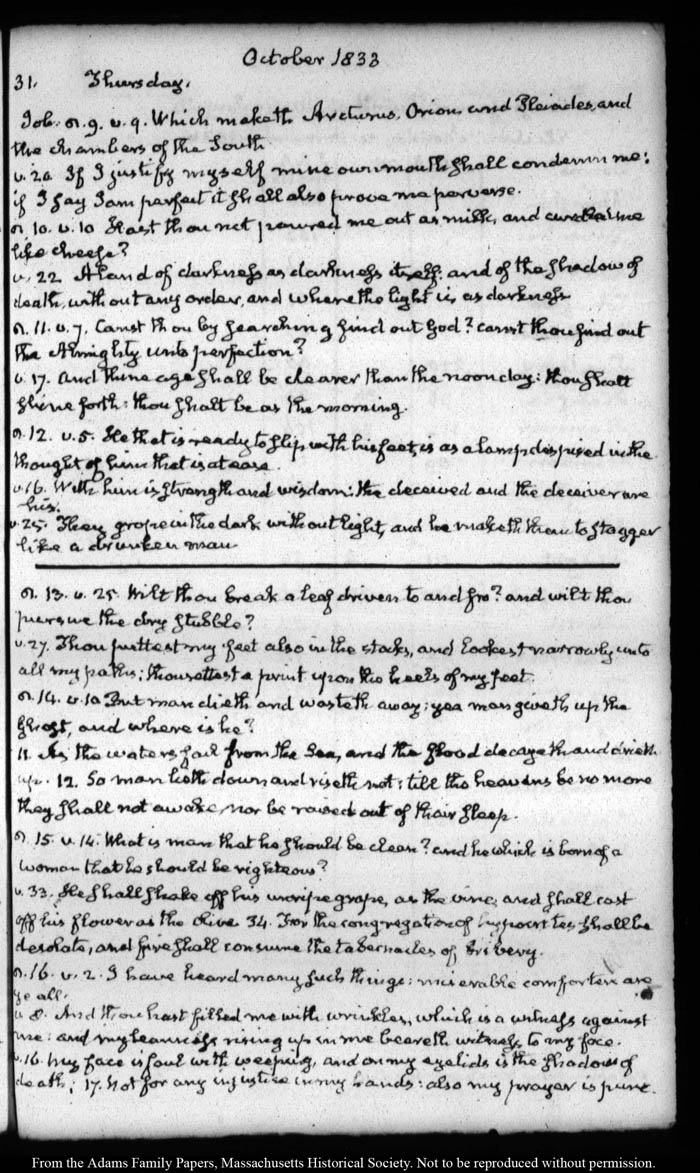 October 1833
31. Thursday.
Job. c. 9. v. 9. Which maketh Arcturus, Orion and Pleiades, and
the chambers of the South
v. 20 If I justify myself mine own mouth shall condemn me:
if I say I am perfect it shall also prove me perverse.
c. 10. v. 10 Hast thou not poured me out as milk, and curdled me
like cheese?
v. 22 A land of darkness as darkness itself; and of the shadow of
death, without any order, and where the light is as darkness
c. 11. v. 7. Canst thou by searching find out God? canst thou find out
the Almighty unto perfection?
v. 17. And thine age shall be clearer than the noonday: thou shalt
shine forth: thou shalt be as the morning.
c. 12. v. 5. He that is ready to slip with his feet, is as a lamp despised in the
thought of him that is at ease.
v. 16. With him is strength and wisdom: the deceived and the deceiver are
his.
v. 25. They grope in the dark without light, and he maketh them to stagger
like a drunken man
c. 13. v. 25. Wilt thou break a leaf driven to and fro? and wilt thou
pursue the dry stubble?
v. 27. Thou puttest my feet also in the stocks, and lookest narrowly unto
all my paths; thou settest a print upon the heels of my feet.
c. 14. v. 10 But man dieth and wasteth away; yea man giveth up the
ghost, and where is he?
11. As the waters fail from the Sea, and the flood decayeth and drieth
up. 12. So man lieth down and riseth not: till the heavens be no more
they shall not awake, nor be raised out of their sleep.
c. 15. v. 14. What is man that he should be clean? and he which is born of a
woman that he should be righteous?
v. 33. He shall shake off his unripe grape, as the vine, and shall cast
off his flower as the Olive 34. For the congregation of hypocrites shall be
desolate, and fire shall consume the tabernacles of bribery.
c. 16. v. 2. I have heard many such things: miserable comforters are
ye all.
v. 8. And thou hast filled me with wrinkles, which is a witness against
me: and my leanness rising up in me beareth witness to my face.
v. 16. My face is foul with weeping, and on my eyelids is the shadow of
death; 17. Not for any injustice in my hands: also my prayer is pure.
From the Adams Family Papers, Massachusetts Historical Society. Not to be reproduced without permission.